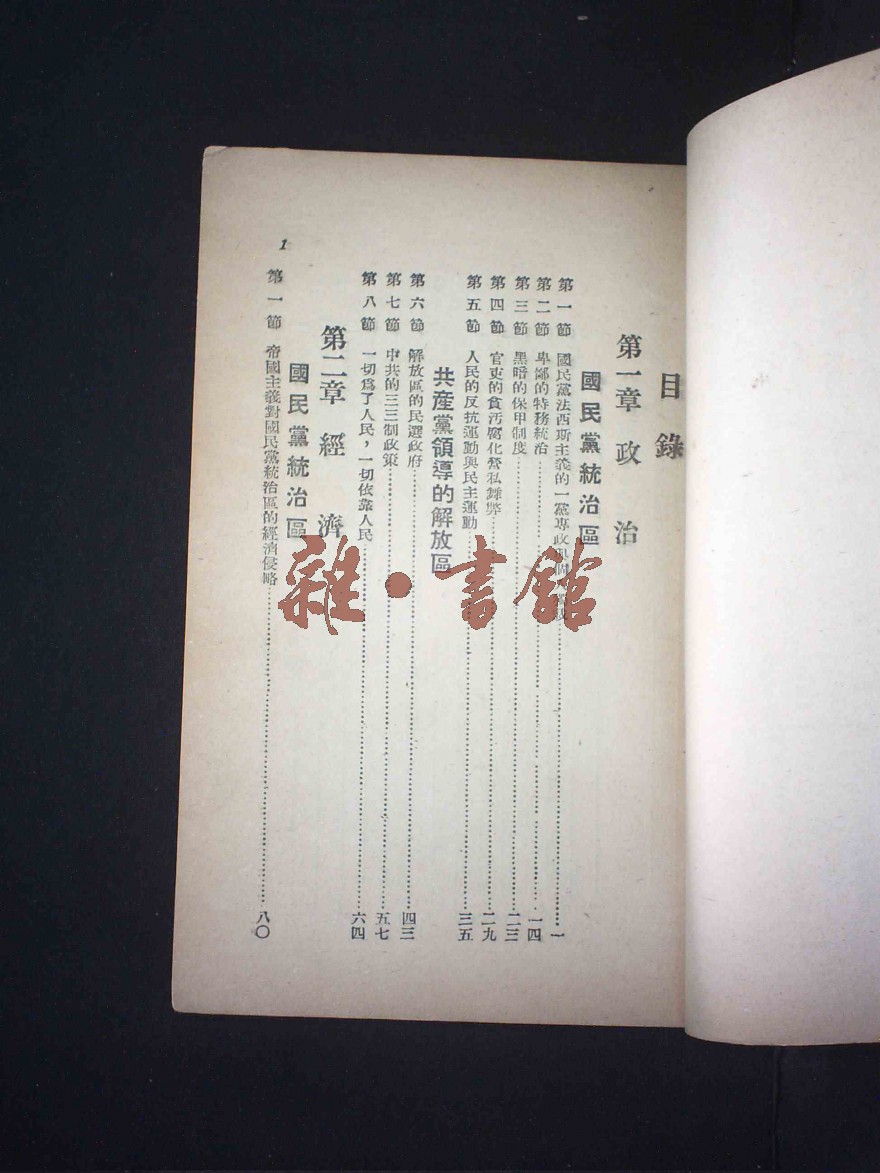 目錄
第一章 政治
國民黨統治區
第一節 國民黨法西斯主義的一黨專政與個……一
第二節 卑鄙的特務統治……一四
第三節 黑暗的保甲制度……二三
第四節 官吏的貪污腐化營私舞弊……二九
第五節 人民的反抗運動與民主運動……三五
共產黨領導的解放區
第六節 解放區的民選政府……四三
第七節 中共的三三制政策……五七
第八節 一切爲了人民，一切依靠人民……六四
第二章 經濟
國民黨統治區
第一節 帝國主義對國民黨統治區的經濟侵略……八〇
1
雜·書館